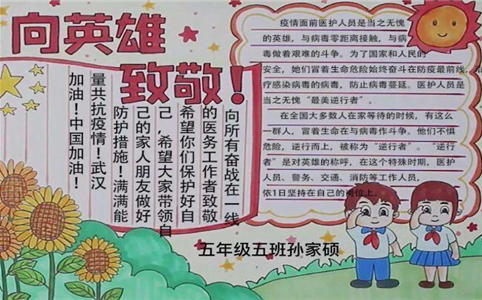 向英雄
致敬！
向所有奋战在一线
的医务工作者致敬
希望你们保护好自
己，希望大家带领自
己的家人朋友做好
防护措施！满满能
量共抗疫情！武汉
加油！中国加油！
疫情面前医护人员是当之无愧
的英雄，与病毒零距离接触，与病
毒做着艰难的斗争，为了国家和人民的
安全，她们冒着生命危险始终奋斗在防疫最前线，
疗感染病毒的病人，防止病毒蔓延，医护人员是
当之无愧“最美逆行者”。
在全国大多数人在家等待的时候，有这么
一群人，冒着生命在与病毒作斗争，他们不惧
危险，逆行而上，被称为“逆行者”。“逆行
者”是对英雄的称呼，在这个特殊时期，医护
人员、警务、交通、消防等工作人员，
依旧坚持在自己的岗位上。
五年级五班孙家硕